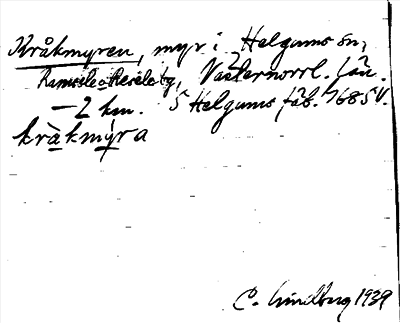 Kråkmyren, myr i Helgums sn,
Ramsele o Resele tg, Västernorrl. län.
– 2 km. S Helgums fäb. 768 SV.
kràkmýra
C. Lindberg 1939